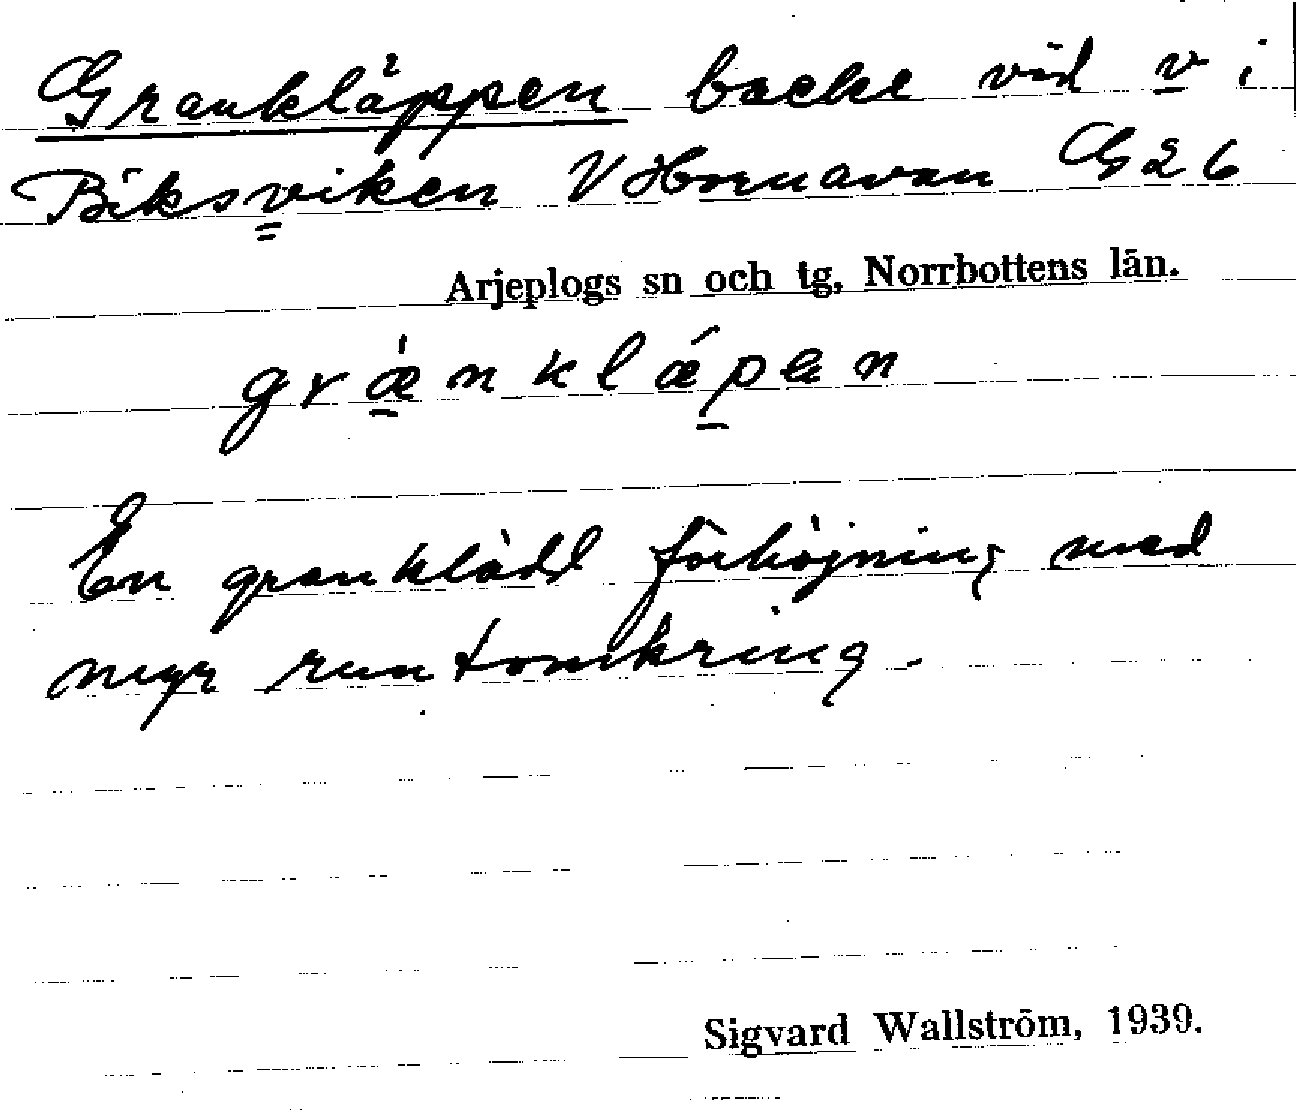 Grankläppen backe vid v i
Biksviken V Hornavan G26
Arjeplogs sn och tg, Norrbottens län.
grǽnklǽpen
En granklädd förhöjning med
myr runtomkring.
Sigvard Wallström, 1939.